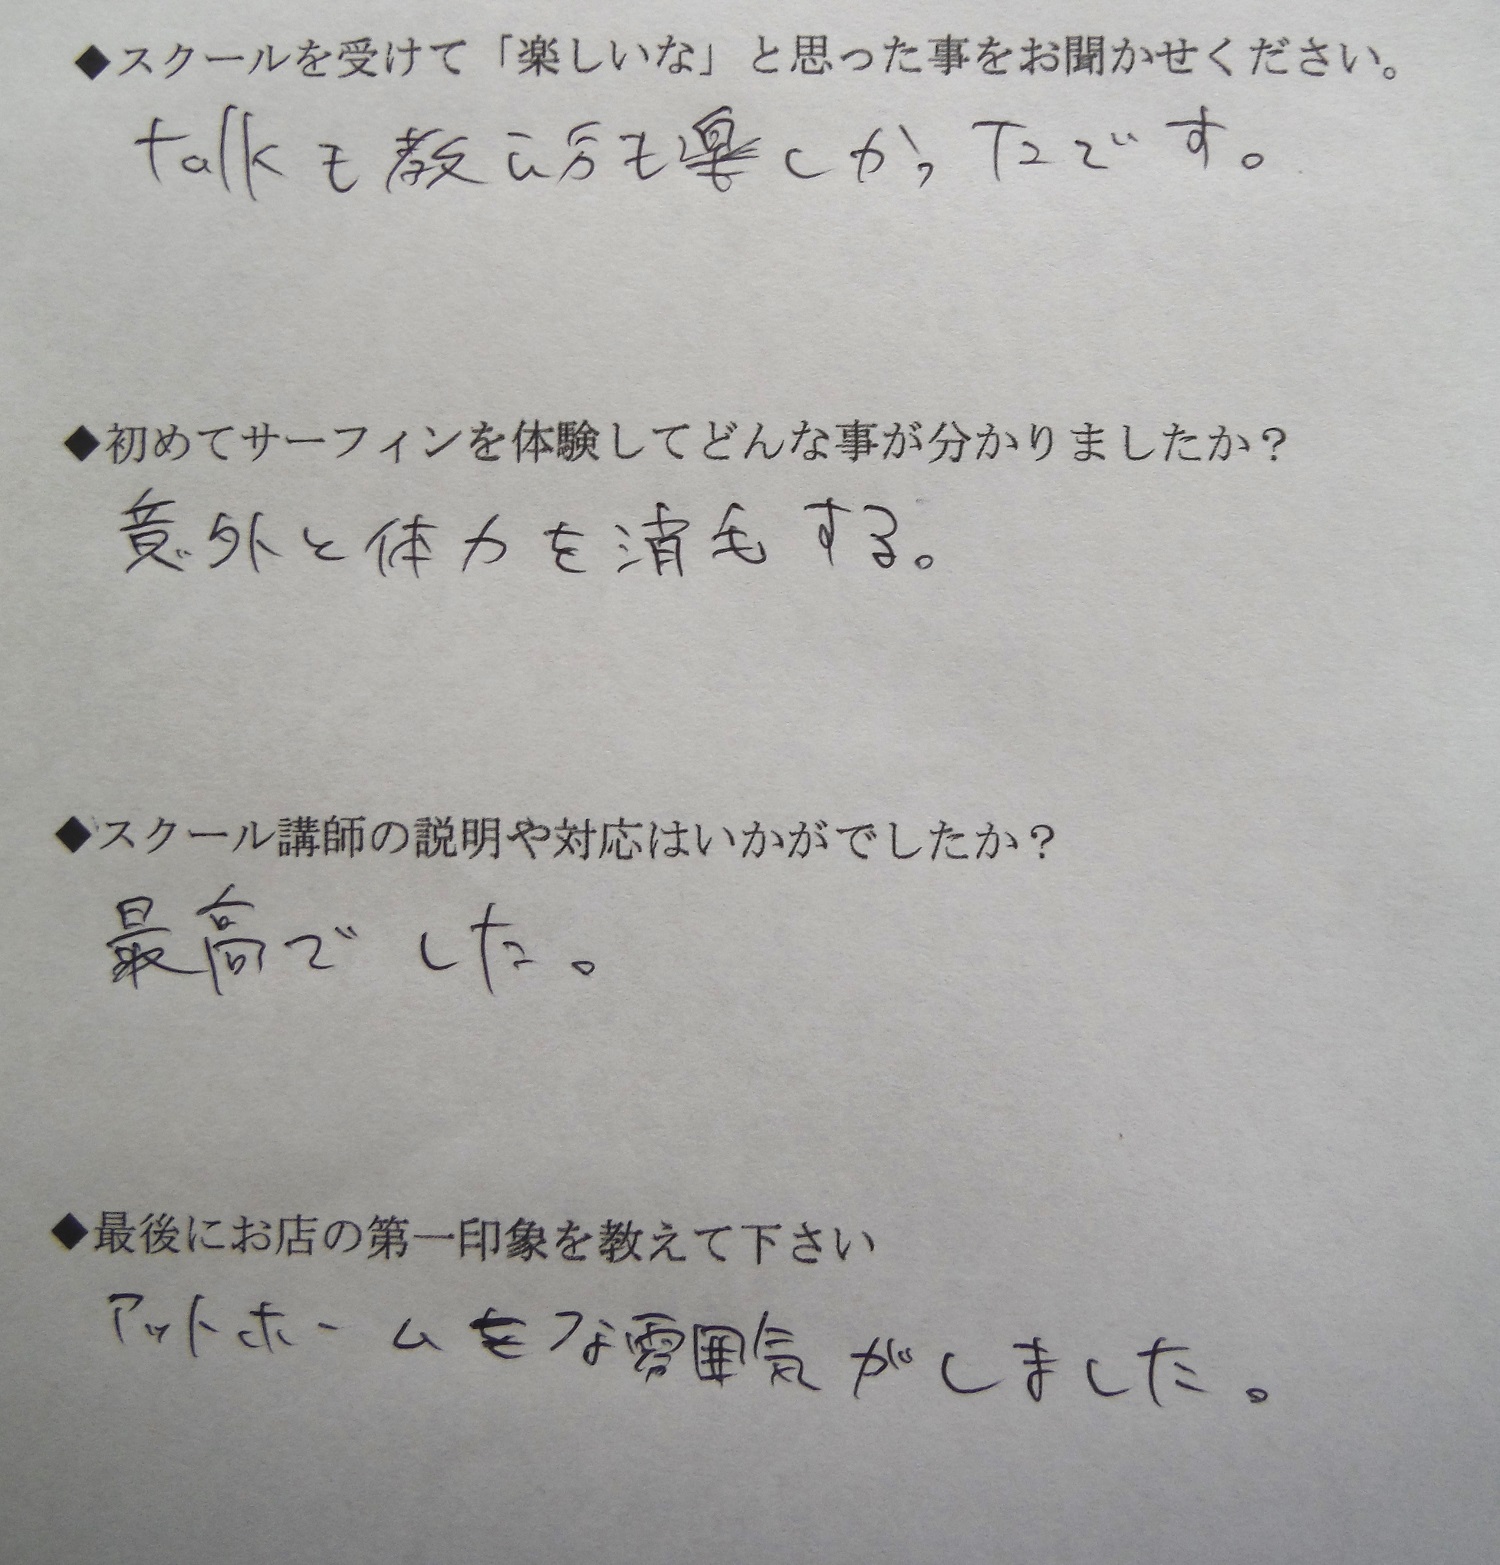 ◆スクールを受けて「楽しいな」と思った事をお聞かせください。
talkも教え方も楽しかったです。
◆初めてサーフィンを体験してどんな事が分かりましたか？
意外と体力を消毛する。
◆スクール講師の説明や対応はいかがでしたか？
最高でした。
◆最後にお店の第一印象を教えて下さい
アットホームな雰囲気がしました。